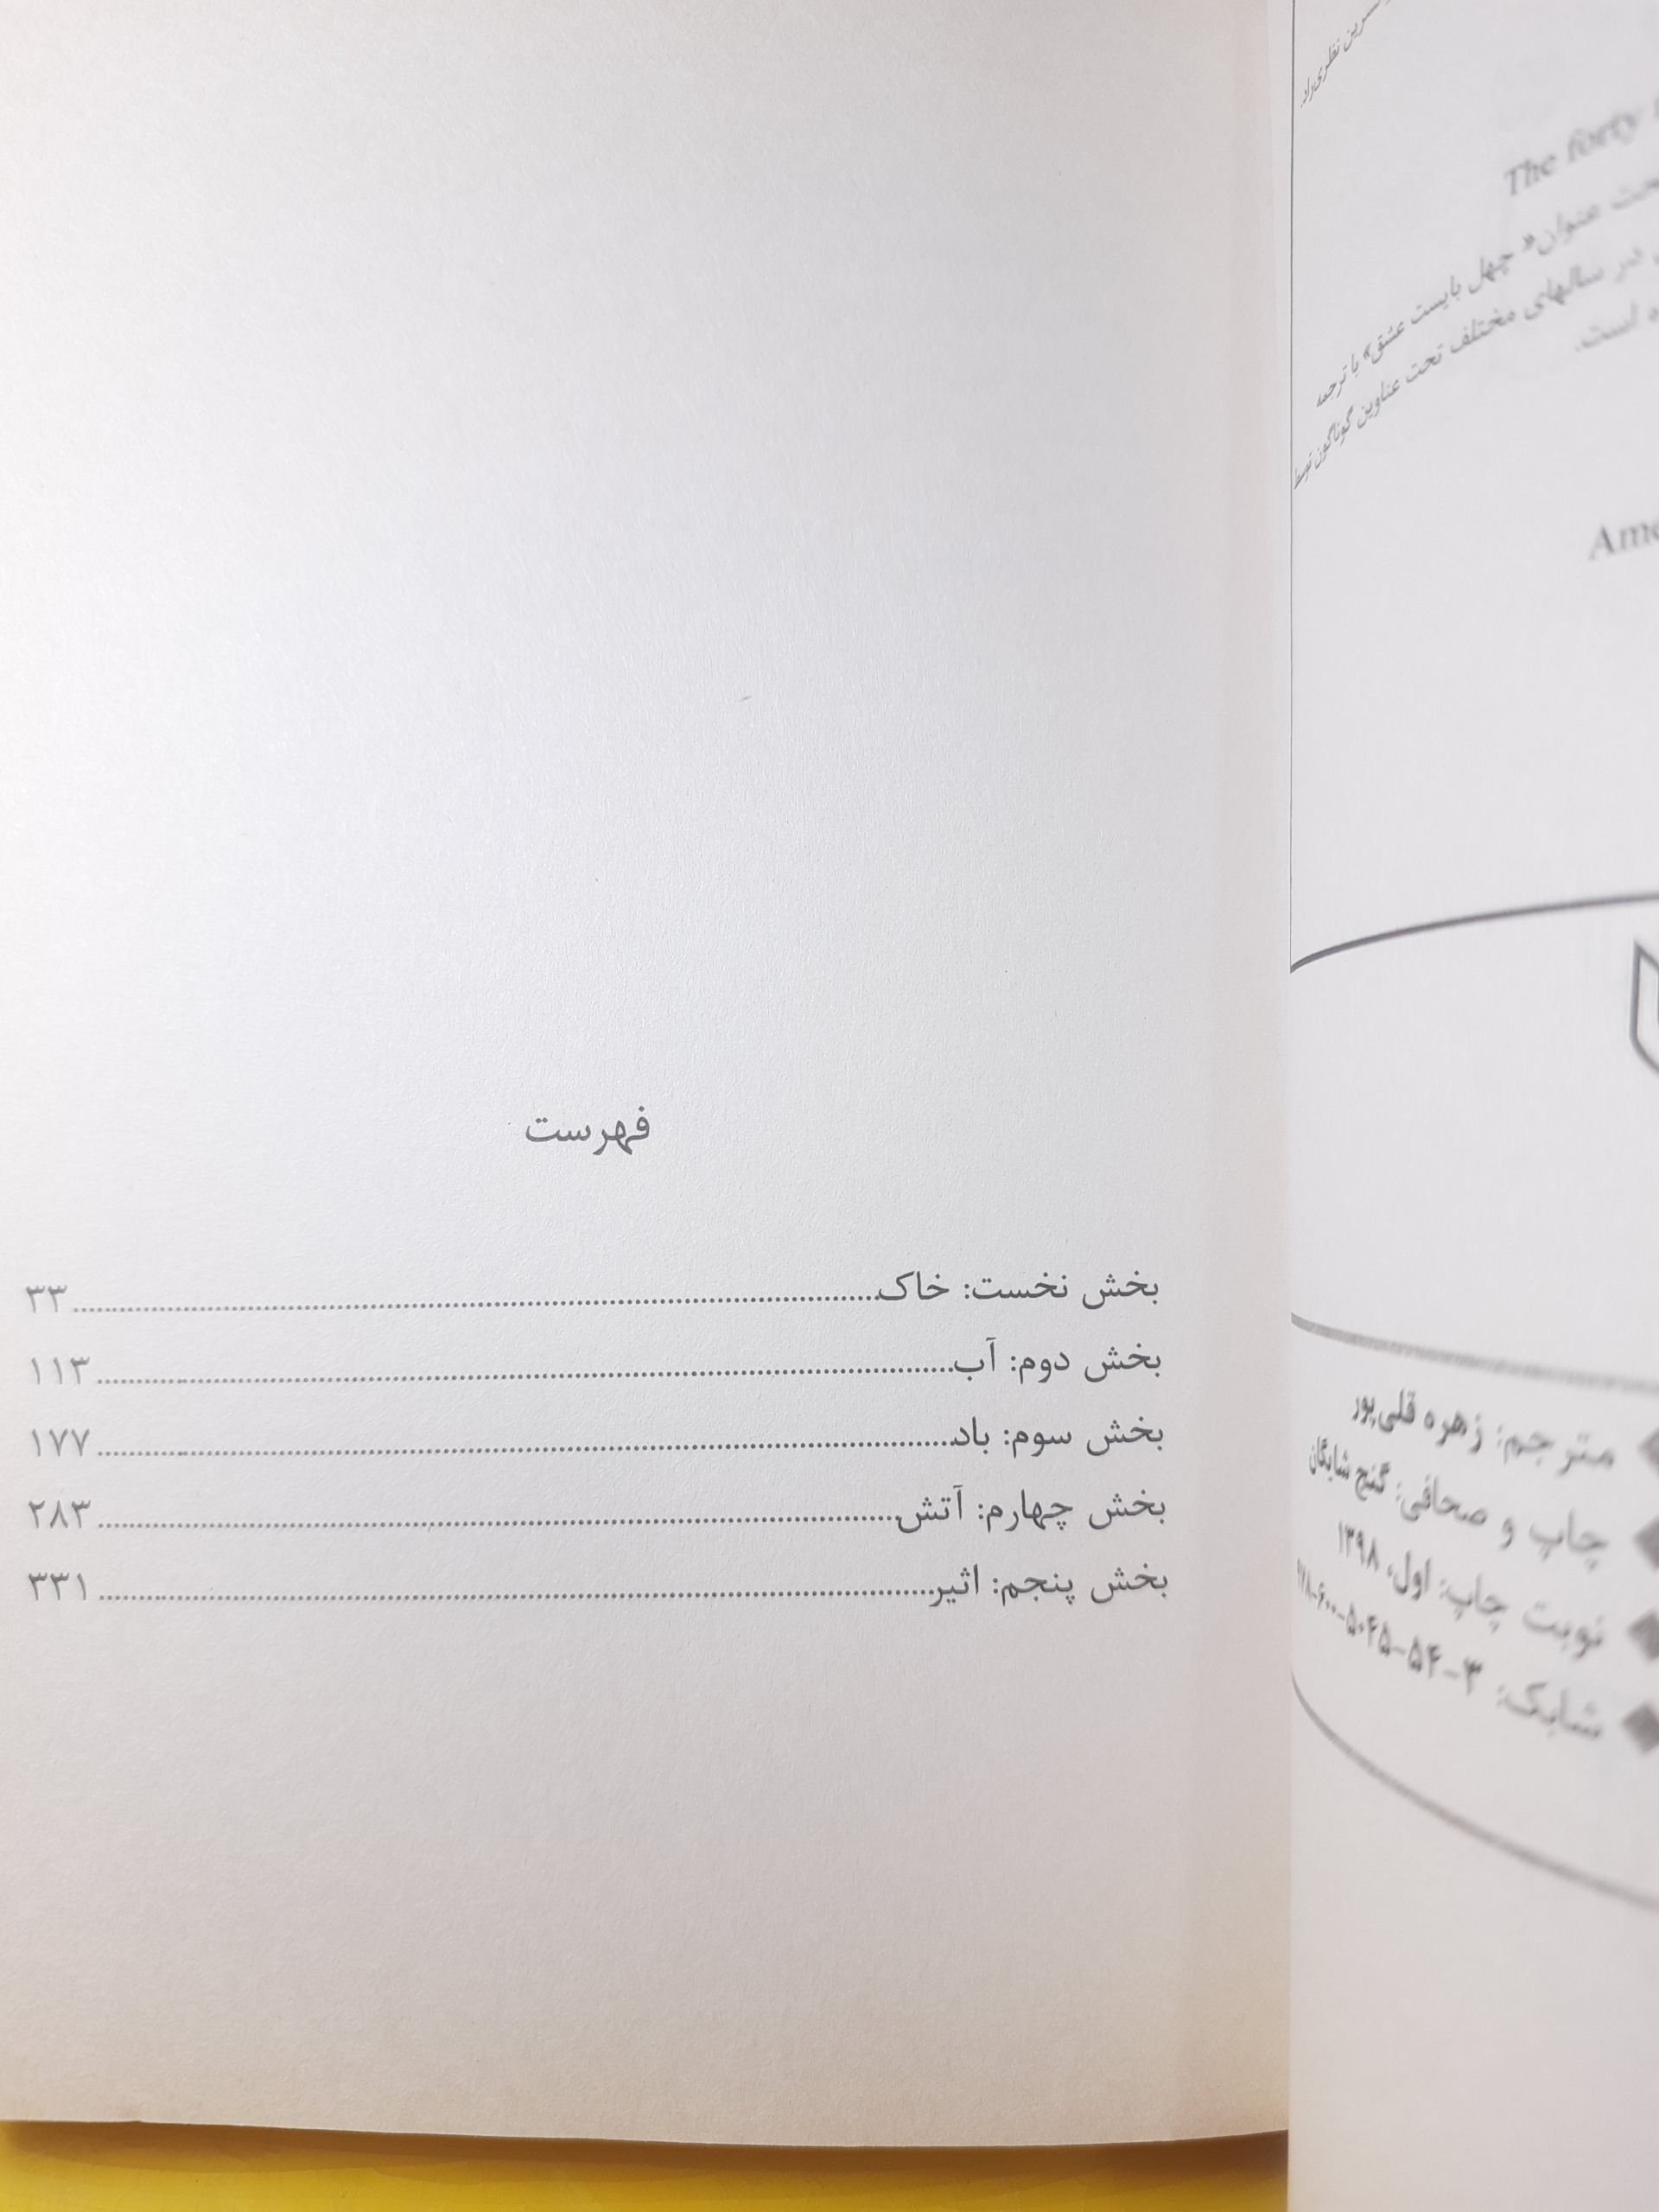 فهرست
بخش نخست: خاک ۳۳
بخش دوم: آب ۱۱۳
بخش سوم: باد ۱۷۷
بخش چهارم: آتش ۲۸۳
بخش پنجم: اثیر ۳۳۱
نظری‌راد.
The forty
عنوان« چهل بایست عشق» با ترجمه
در سالهای مختلف تحت عناوین گوناگون توسط
است.
مترجم: زهره قلی‌پور
چاپ و صحافی: گنج شایگان
نوبت چاپ: اول، ۱۳۹۸
شابک: ۳-۵۴-۵۴۰۵-۶۰۰